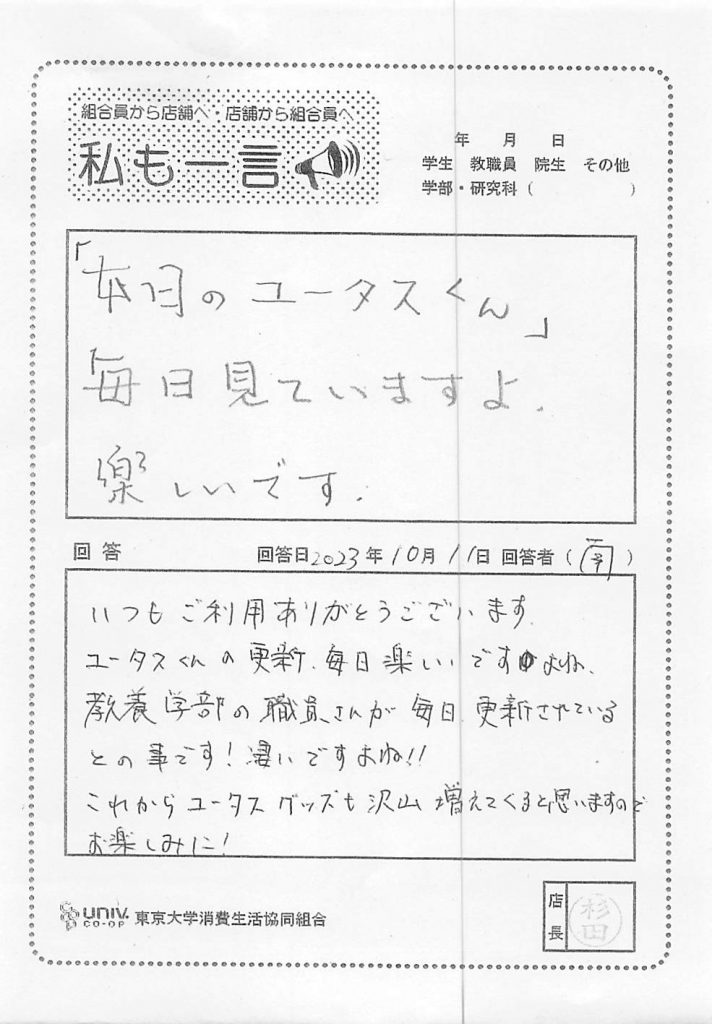 組合員から店舗へ・店舗から組合員へ
私も一言
年 月 日
学生 教職員 院生 その他
学部・研究科( )
「本日のユータスくん」
毎日見ていますよ.
楽しいです.
回答 回答日2023年10月11日 回答者( )
いつもご利用ありがとうございます.
ユータスくんの更新、毎日楽しいですよね、
教養学部の職員さんが毎日、更新させている
との事です!凄いですよね!!
これからユータスグッズも沢山増えてくると思いますので
お楽しみに!
UNIV. CO-OP 東京大学消費生活協同組合
店長 杉田